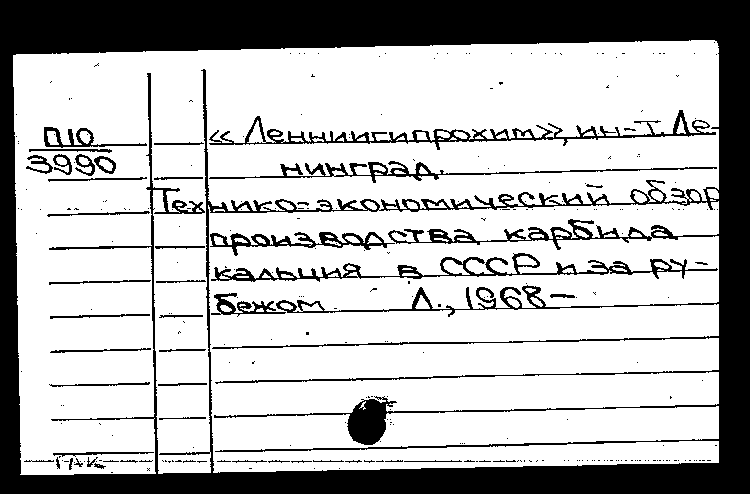 П10
3990
«Ленниигипрохим», ин-т. Ле-
нинград.
Технико-экономический обзор
производства карбида
кальция в СССР и за ру-
бежом Л., 1968-
ГАК